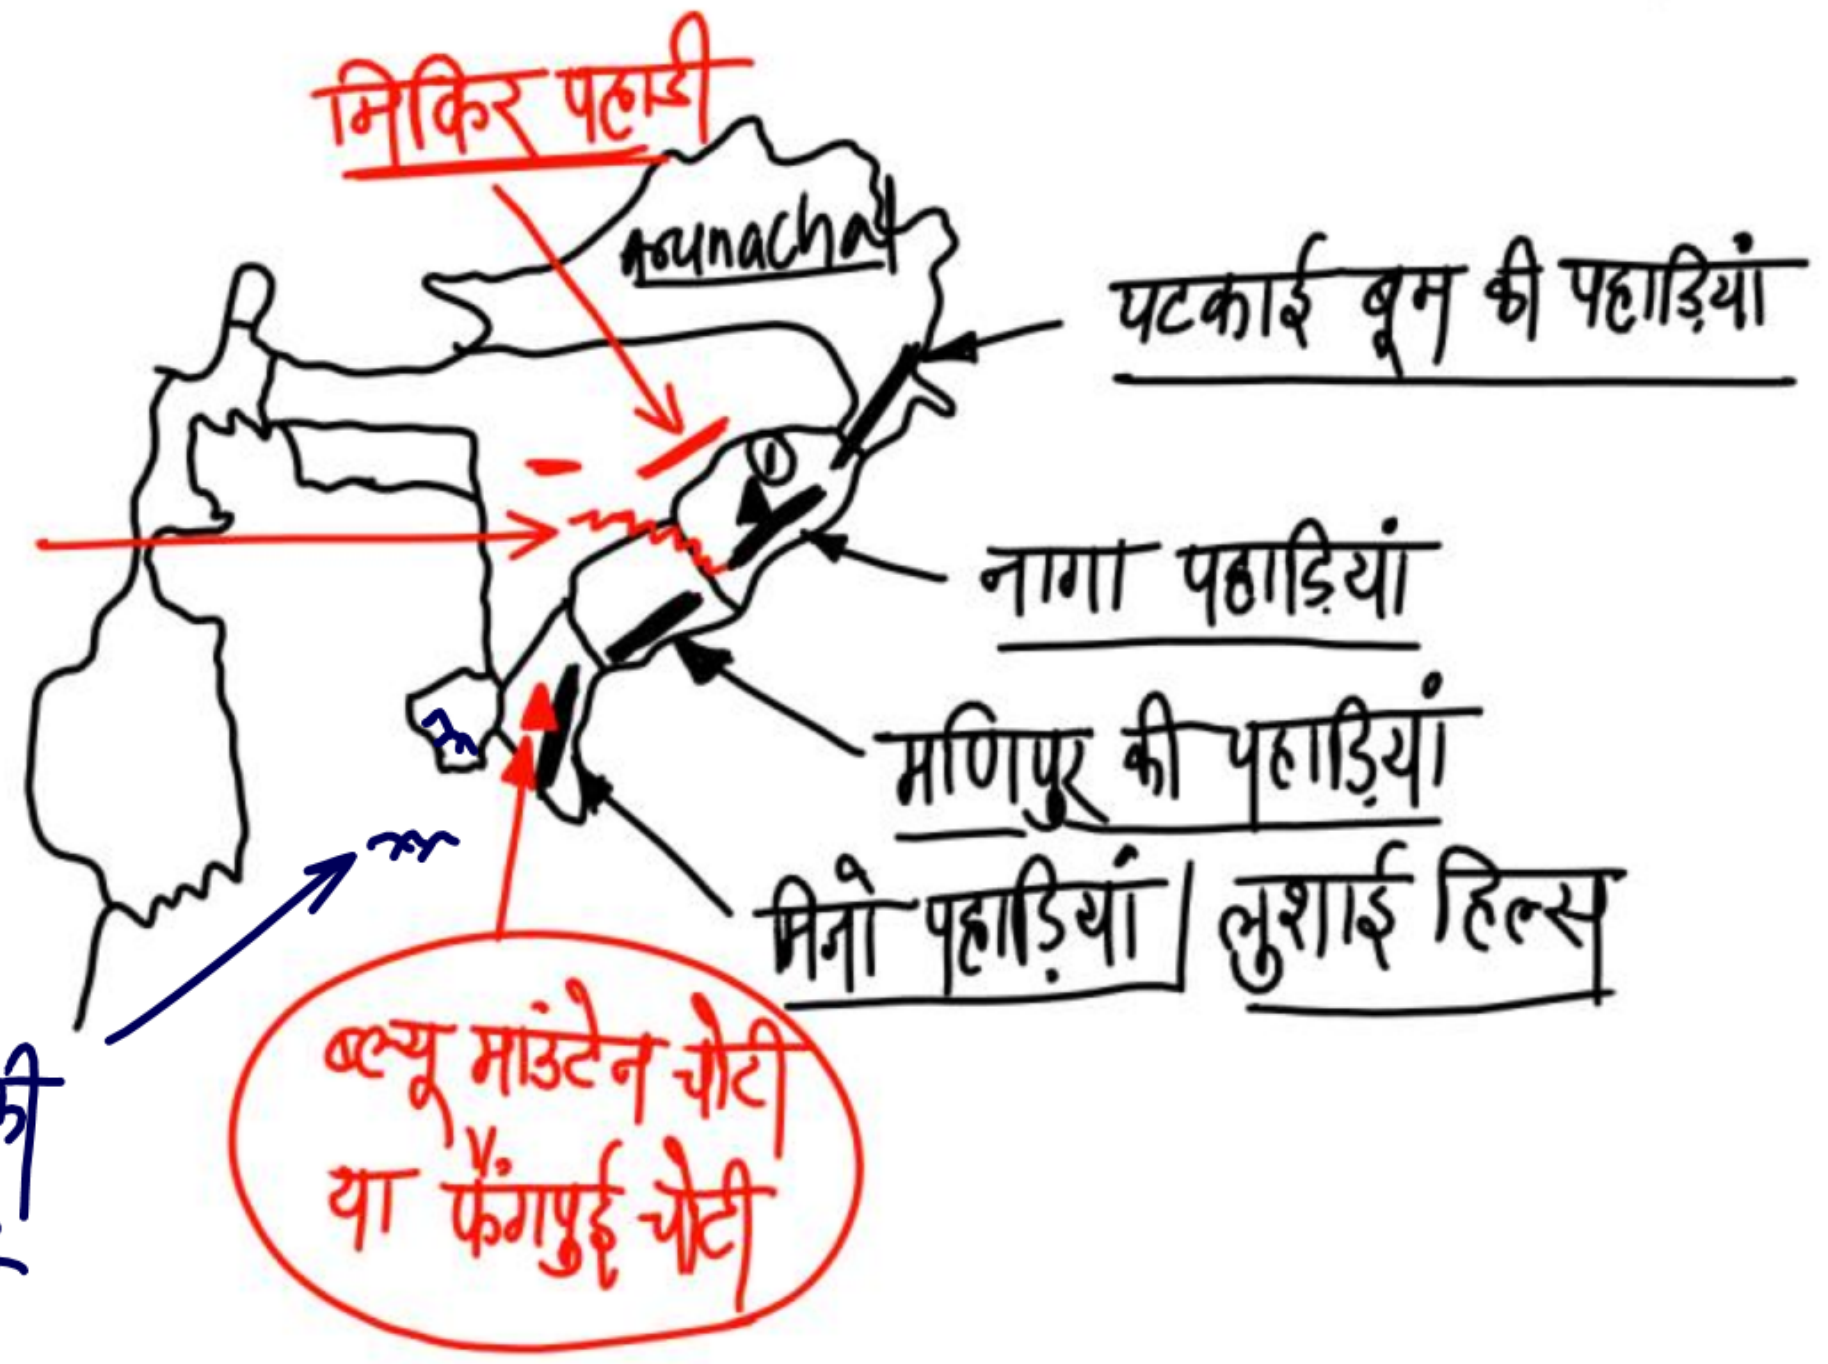 मिकिर पहाडी
Arunachal
पटकाई बूम की पहाड़ियां
1
नागा पहाड़ियां
मणिपुर की पहाड़ियां
मिजो पहाड़ियां | लुशाई हिल्स
ब्ल्यू माउंटेन चोटी
या फॅंगपुई चोटी
की